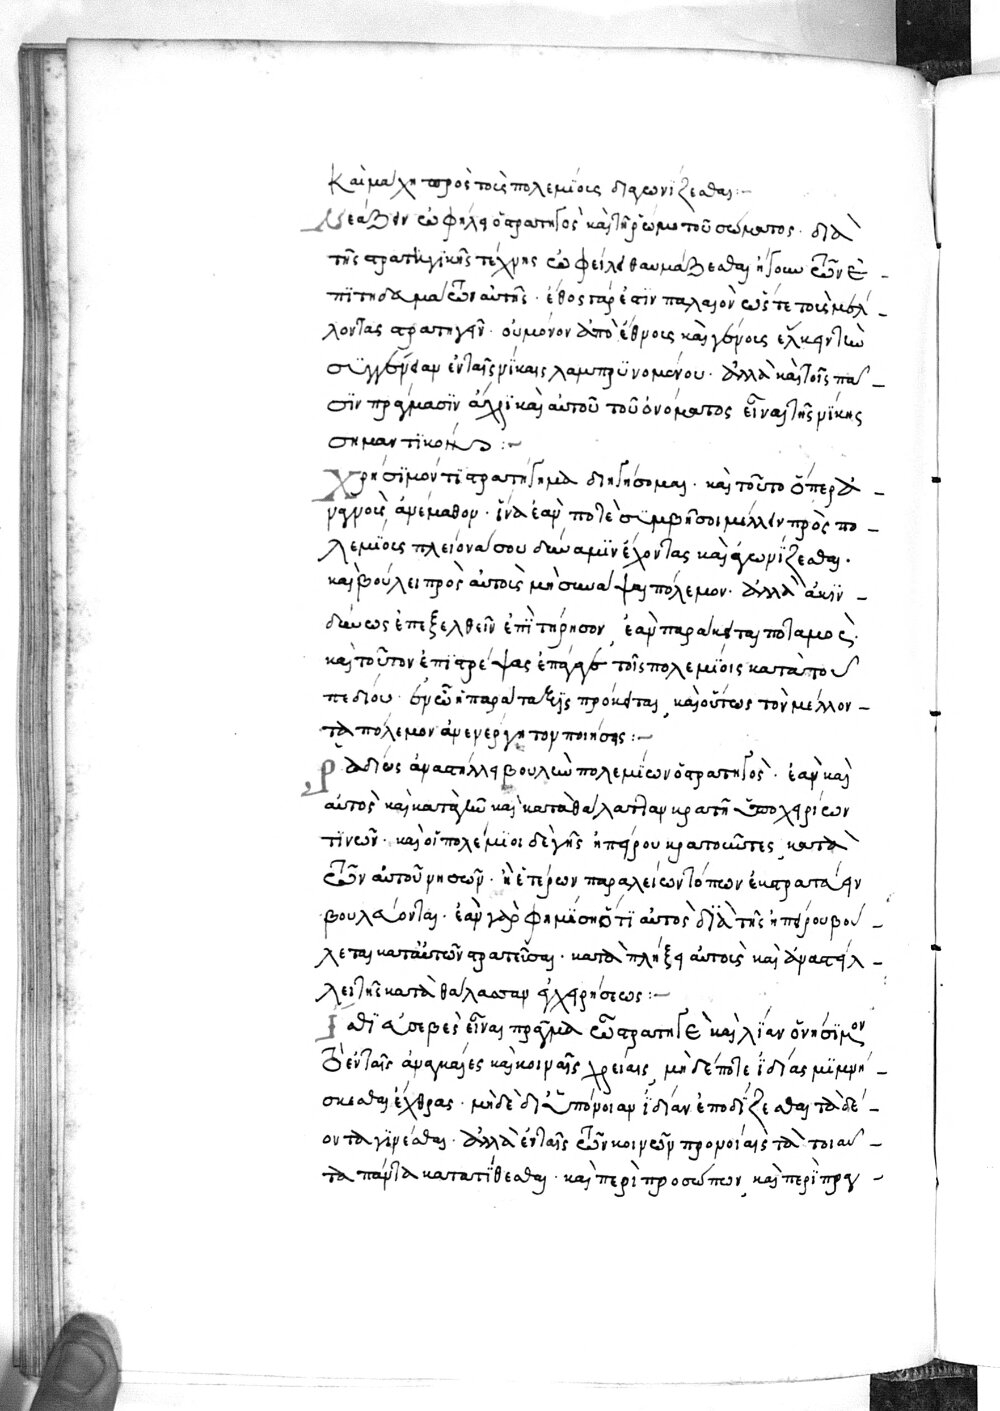 καὶ μάχῃ πρὸς τοὺς πολεμίους διαγωνίζεσθαι :~
Νεάζειν ὀφείλει ὁ στρατηγὸς καὶ τῇ ῥώμῃ τοῦ σώματος · διὰ
τῆς στρατηγικῆς τέχνης ὀφείλει θαυμάζεσθαι τῶν ἐ-
πιτηδευμάτων αὐτῆς · ἔθος γάρ ἐστιν παλαιὸν ὥστε τοὺς μέλ-
λοντας στρατηγεῖν · οὐ μόνον ἀπὸ ἔθνους καὶ γένους ἕλκειν τὴν
συγγένειαν ἐν ταῖς νίκαις λαμπρυνομένου · ἀλλὰ καὶ τοῖς πᾶ-
σιν πράγμασιν καὶ αὐτοῦ τοῦ ὀνόματος εἶναι τῆς νίκης
σημαντικόν :~
Χρήσιμόν τι στρατήγημα διηγήσομαι · καὶ τοῦτο ὅπερ ἀ-
ναγνοὺς ἀνέμαθον · ἵνα ἐὰν ποτὲ συμβῇ σοι μέλλειν πρὸς πο-
λεμίους πλείονα σου δύναμιν ἔχοντας καὶ ἀγωνίζεσθαι ·
καὶ βούλει πρὸς αὐτοὺς μὴ συνάψαι πόλεμον · ἀλλὰ ἀκιν-
δύνως ἐπεξελθεῖν ἐπιτήρησον, ἐὰν παράκειται ποταμὸς ·
καὶ τοῦτον ἐπιστρέψας ἐπάγαγε τοῖς πολεμίοις κατὰ τοῦ
πεδίου · ἐν ᾧ ἡ παράταξις πρόκειται, καὶ οὕτως τὸν μέλλον-
τα πόλεμον ἀνενέργητον ποιήσεις :~
Ῥᾳδίως ἀναστέλλει βουλὴν πολεμίων ὁ στρατηγὸς · ἐὰν καὶ
αὐτὸς καὶ κατὰ γῆν καὶ κατὰ θάλατταν κρατῇ ὑποχειρίων
τινῶν · καὶ οἱ πολέμιοι δὲ γῆς ἠπείρου κρατοῦντες, κατὰ
τῶν αὐτοῦ νήσων · ἢ ἑτέρων παραλίων τόπων ἐκστρατεύειν
βουλεύονται · ἐὰν γὰρ φημίσῃ ὅτι αὐτὸς διὰ τῆς ἠπείρου βού-
λεται κατ' αὐτῶν στρατεῦσαι · καταπλήξει αὐτοὺς καὶ ἀναστέλ-
λει τῆς κατὰ θάλασσαν ἐγχειρήσεως :~
Ἴσθι ἀσεβὲς εἶναι πρᾶγμα ὦ στρατηγὲ καὶ λίαν ὀνήσιμον
τὸ ἐν ταῖς ἀναγκαίαις καὶ κοιναῖς χρείαις, μηδέποτε ἰδίας μιμνή-
σκεσθαι ἔχθρας · μηδὲ δι' ὑπόνοιαν ἰδίαν ἐμποδίζεσθαι τὰ δέ-
οντα γίνεσθαι · ἀλλὰ ἐν ταῖς τῶν κοινῶν προνοίαις τὰ τοιαῦ-
τα πάντα κατατίθεσθαι · καὶ περὶ προσώπων, καὶ περὶ πραγ-